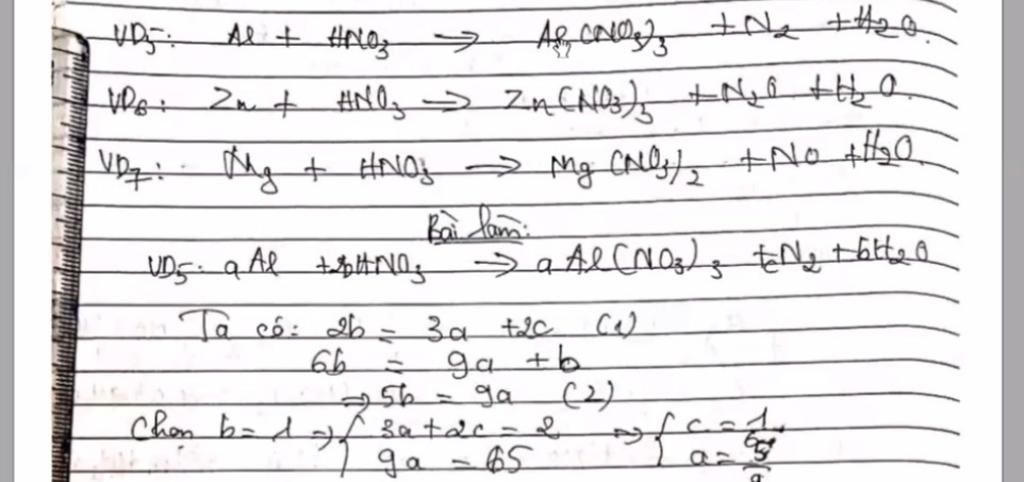 VD5: Al + HNO3 → Al(NO3)3 + N2 + H2O.
VD6: Zn + HNO3 → Zn(NO3)3 + N2O + H2O.
VD7: Mg + HNO3 → Mg(NO3)2 + NO + H2O.
Bài làm:
VD5: aAl + 2bHNO3 → aAl(NO3)3 + cN2 + bH2O
Ta có: 2b = 3a + 2c (1)
6b = 9a + b
⇒ 5b = 9a (2)
Chọn b = 1 ⇒ { 3a + 2c = 2 ⇒ { c = 1/6
9a = 5 a = 5/9